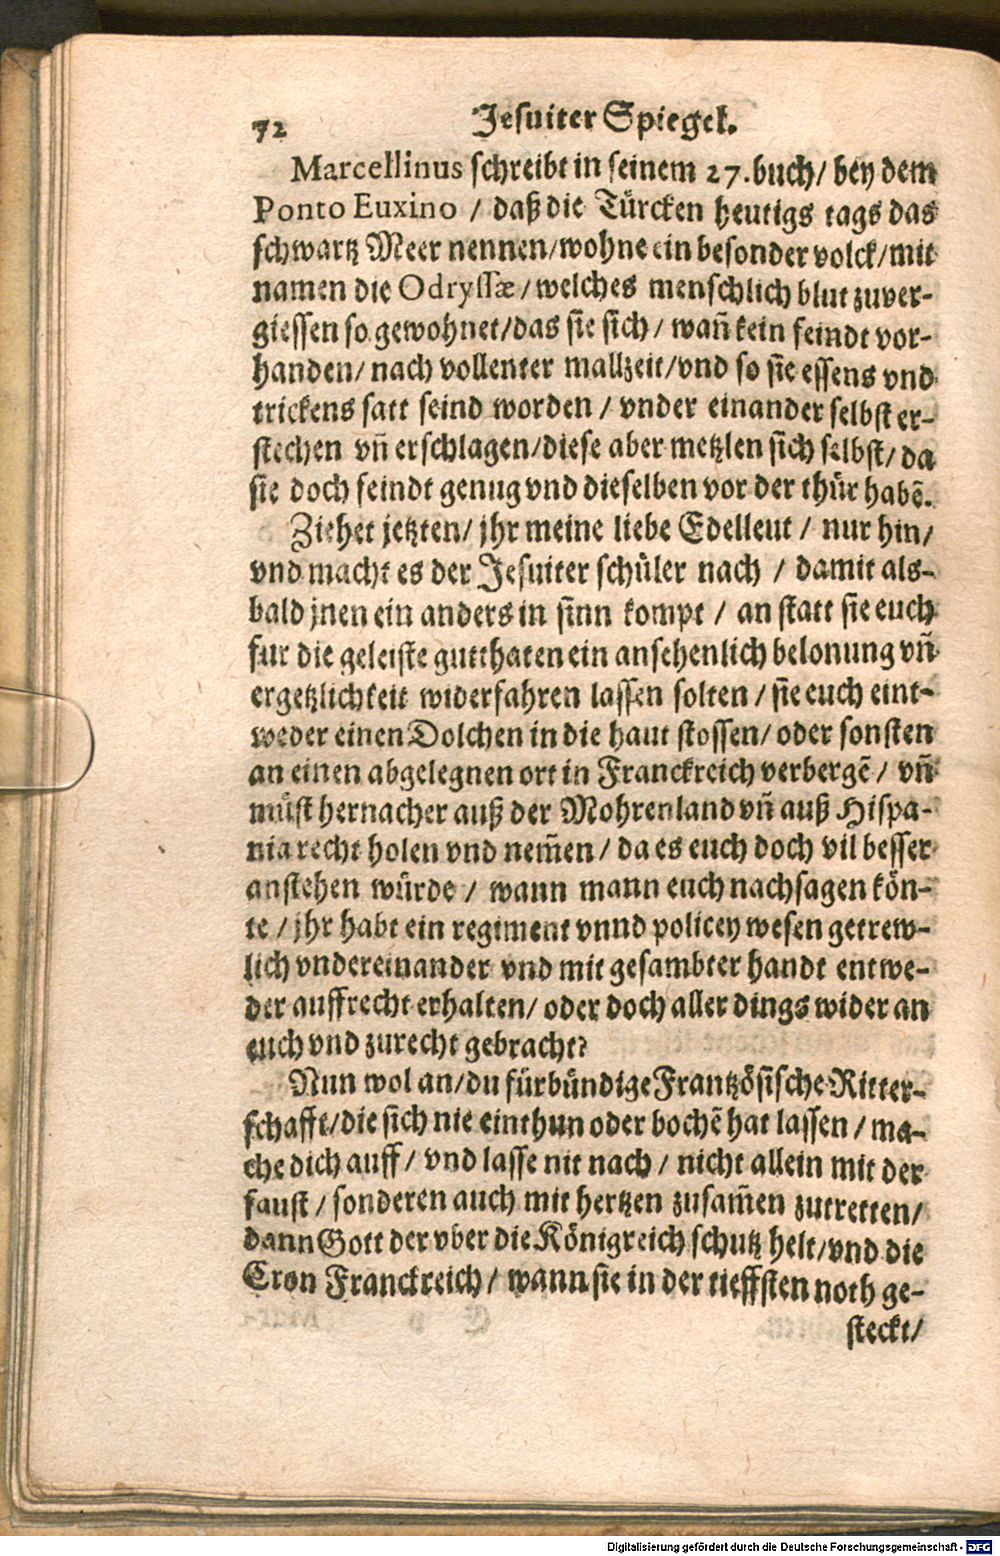 72 Jesuiter Spiegel.
Marcellinus schreibt in seinem 27. buch / bey dem
Ponto Euxino / daß die Türcken heutigs tags das
schwartz Meer nennen/wohne ein besonder volck/mit
namen die Odryssæ/welches menschlich blut zuver-
giessen so gewohnet/das sie sich / wañ kein feindt vor-
handen/ nach vollenter mallzeit/vnd so sie essens vnd
trickens satt seind worden / vnder einander selbst er-
stechen vñ erschlagen/diese aber metzlen sich selbst/ da
sie doch feindt genug vnd dieselben vor der thür habẽ.
Ziehet jetzten/ jhr meine liebe Edelleut / nur hin/
vnd macht es der Jesuiter schüler nach / damit als-
bald jnen ein anders in sinn kompt / an statt sie euch
fur die geleiste gutthaten ein ansehenlich belonung vñ
ergetzlichkeit widerfahren lassen solten / sie euch eint-
weder einen Dolchen in die haut stossen/ oder sonsten
an einen abgelegnen ort in Franckreich verbergẽ / vñ
müst hernacher auß der Mohrenland vñ auß Hispa-
nia recht holen vnd nem̃en / da es euch doch vil besser
anstehen würde / wann mann euch nachsagen kön-
te / jhr habt ein regiment vnnd policey wesen getrew-
lich vndereinander vnd mit gesambter handt entwe-
der auffrecht erhalten/ oder doch aller dings wider an
euch vnd zurecht gebracht?
Nun wol an/du fürbündige Frantzösische Ritter-
schafft/die sich nie einthun oder bochẽ hat lassen / ma-
che dich auff / vnd lasse nit nach / nicht allein mit der
faust / sonderen auch mit hertzen zusam̃en zutretten/
dann Gott der vber die Königreich schutz helt/vnd die
Cron Franckreich / wann sie in der tieffsten noth ge-
steckt/
Digitalisierung gefördert durch die Deutsche Forschungsgemeinschaft - DFG